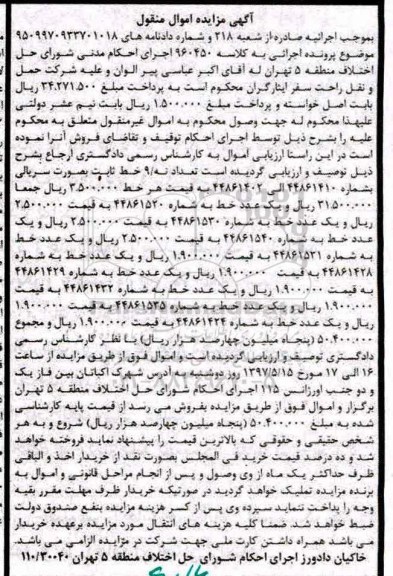 آگهی مزایده اموال منقول
بموجب اجرائیه صادره از شعبه ۲۱۸ و شماره دادنامه های ۹۵۰۹۹۷۰۹۳۳۷۰۱۰۱۸
موضوع پرونده اجرائی به کلاسه ۹۶۰۴۵۰ اجرای احکام مدنی شورای حل
اختلاف منطقه ۵ تهران له آقای اکبر عباسی پیر الوان و علیه شرکت حمل
و نقل راحت سفر ایثارگران محکوم است به پرداخت مبلغ ۳۴.۲۷۱.۵۰۰ ریال
بابت اصل خواسته و پرداخت مبلغ ۱.۵۰۰.۰۰۰ ریال بابت نیم عشر دولتی
علیهذا محکوم له جهت وصول محکوم به اموال غیرمنقول متعلق به محکوم
علیه را بشرح ذیل توسط اجرای احکام توقیف و تقاضای فروش آنرا نموده
است در این راستا ارزیابی اموال به کارشناس رسمی دادگستری ارجاع بشرح
ذیل توصیف و ارزیابی گردیده است تعداد نه/۹ خط ثابت بصورت سریالی
بشماره ۴۴۸۶۱۴۱۰ الی ۴۴۸۶۱۴۰۲ به قیمت هر خط ۳.۵۰۰.۰۰۰ ریال جمعا
۳۱.۵۰۰.۰۰۰ ریال و یک عدد خط به شماره ۴۴۸۶۱۵۲۰ به قیمت ۲.۵۰۰.۰۰۰
ریال و یک عدد خط به شماره ۴۴۸۶۱۵۳۰ به قیمت ۲.۵۰۰.۰۰۰ ریال و یک
عدد خط به شماره ۴۴۸۶۱۵۴۰ به قیمت ۲.۵۰۰.۰۰۰ ریال و یک عدد خط
به شماره ۴۴۸۶۱۵۲۱ به قیمت ۱.۹۰۰.۰۰۰ ریال و یک عدد خط به شماره
۴۴۸۶۱۴۲۸ به قیمت ۱.۹۰۰.۰۰۰ ریال و یک عدد خط به شماره ۴۴۸۶۱۴۲۹
به قیمت ۱.۹۰۰.۰۰۰ ریال و یک عدد خط به شماره ۴۴۸۶۱۴۳۲ به قیمت
۱.۹۰۰.۰۰۰ ریال و یک عدد خط به شماره ۴۴۸۶۱۵۳۵ به قیمت ۱.۹۰۰.۰۰۰
ریال و یک عدد خط به شماره ۴۴۸۶۱۴۲۴ به قیمت ۱.۹۰۰.۰۰۰ ریال و مجموع
۵۰.۴۰۰.۰۰۰ (پنجاه میلیون چهارصد هزار ریال) با نظر کارشناس رسمی
دادگستری توصیف و ارزیابی گردیده است و اموال فوق از طریق مزایده از ساعت
۱۶ الی ۱۷ مورخ ۱۳۹۷/۵/۱۵ روز دوشنبه به آدرس شهرک اکباتان بین فاز یک
و دو جنب اورژانس ۱۱۵ اجرای احکام شورای حل اختلاف منطقه ۵ تهران
برگزار و اموال فوق از طریق مزایده بفروش می رسد از قیمت پایه کارشناسی
شده به مبلغ ۵۰.۴۰۰.۰۰۰ (پنجاه میلیون چهارصد هزار ریال) شروع و به هر
شخص حقیقی و حقوقی که بالاترین قیمت را پیشنهاد نماید فروخته خواهد
شد و ده درصد قیمت خرید فی المجلس بصورت نقد از خریدار اخذ و الباقی
ظرف حداکثر یک ماه از وی وصول و پس از انجام مراحل قانونی و اموال به
برنده مزایده تملیک خواهد گردید در صورتیکه خریدار ظرف مهلت مقرر بقیه
وجه را پداخت ننماید سپرده وی پس از کسر هزینه مزایده بنفع صندوق دولت
ضبط خواهد شد. ضمنا کلیه هزینه های انتقال مورد مزایده برعهده خریدار
می باشد همراه داشتن کارت ملی جهت شرکت در مزایده الزامی می باشد.
خاکیان دادورز اجرای احکام شورای حل اختلاف منطقه ۵ تهران ۱۱۰/۳۰۰۴۰